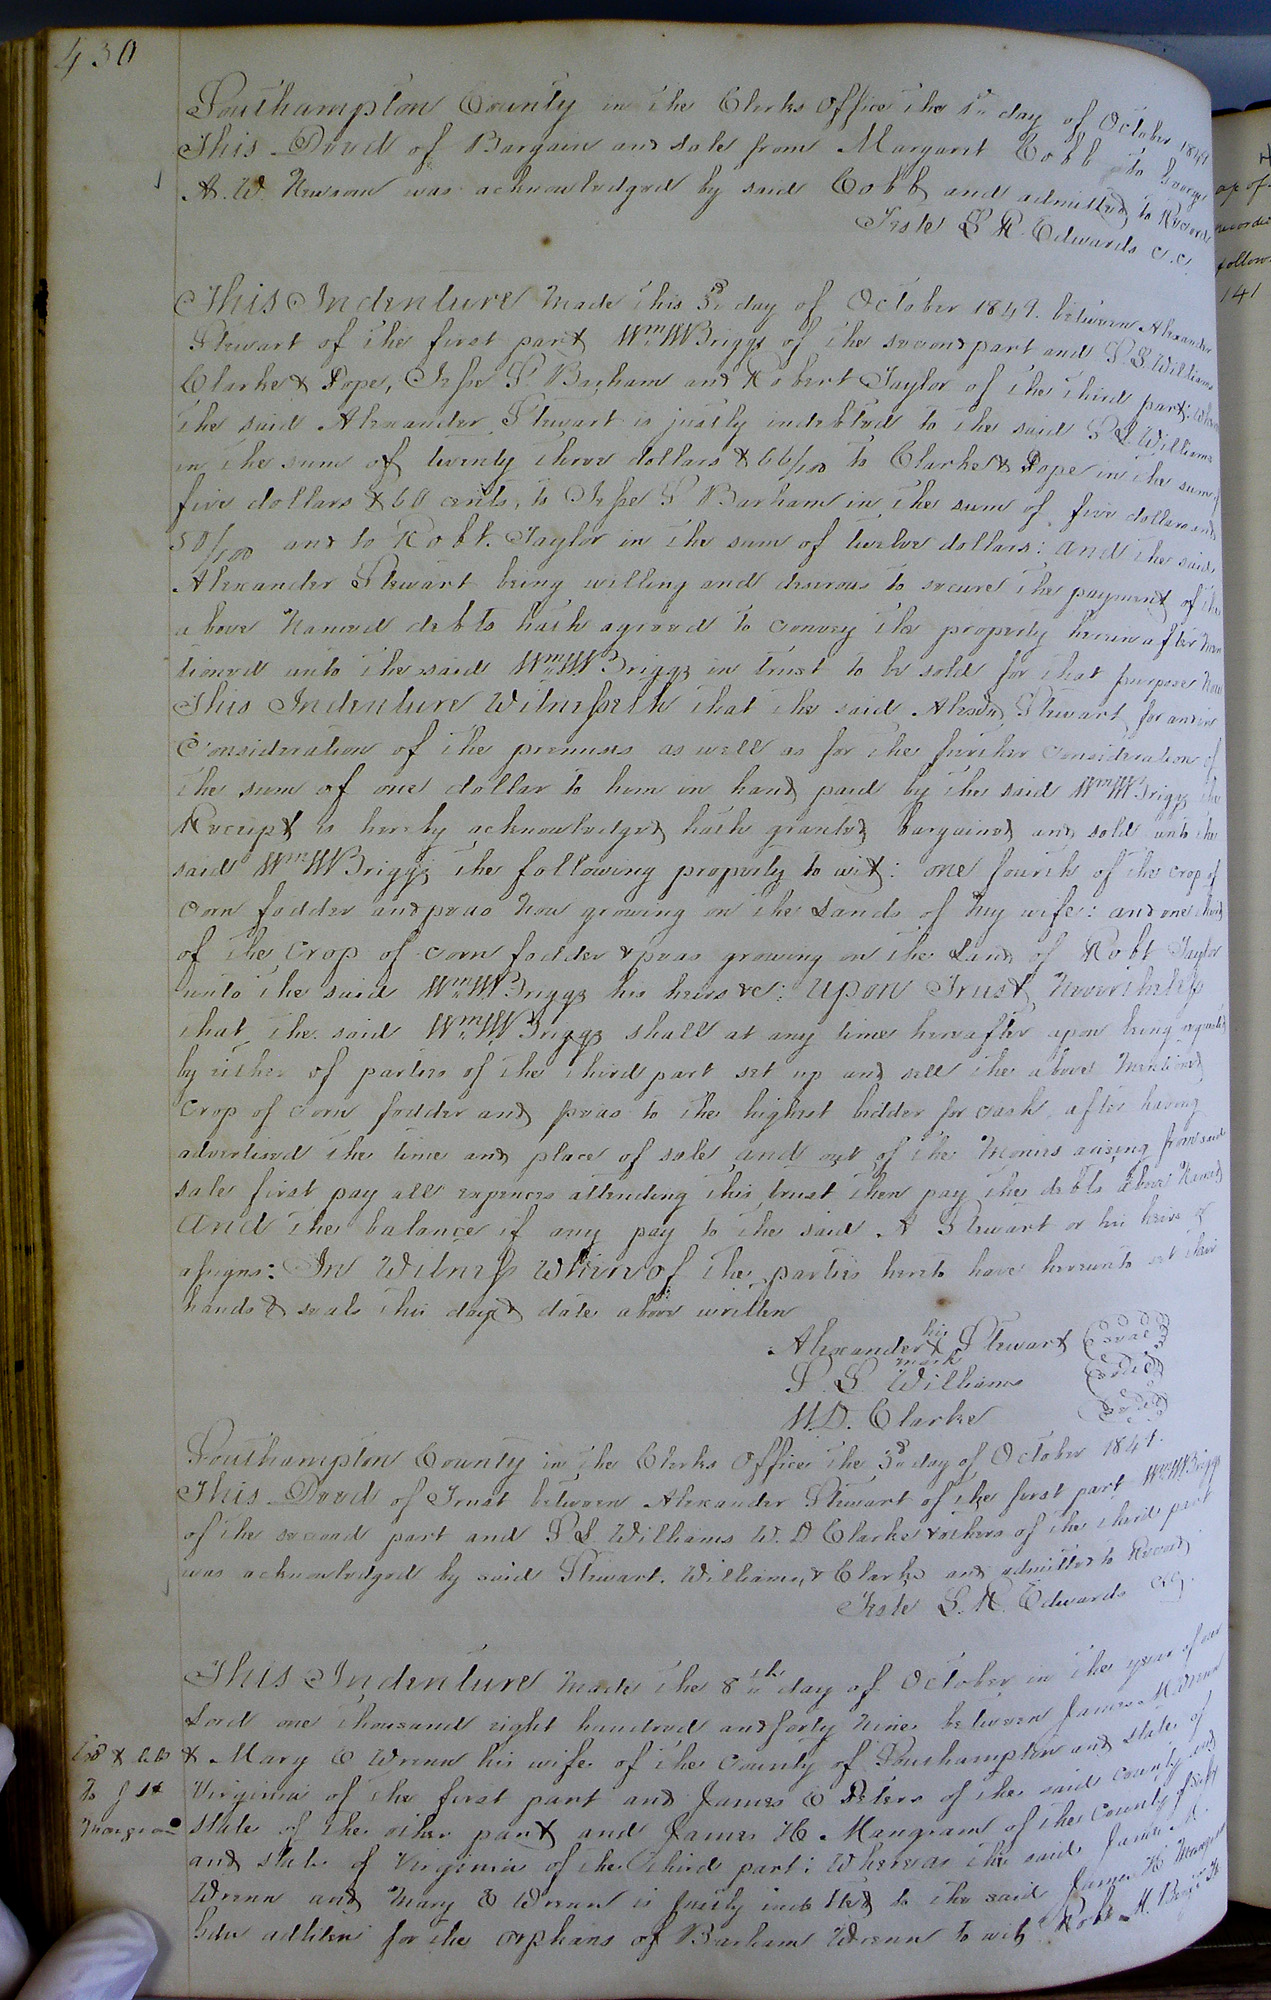 430
Southampton County in the Clerks Office the 1st day of October 1849
This Deed of Bargain and sale from Margaret Cobb to George
A. W. Newsom was acknowledged by said Cobb and admitted to Record
Teste L R. Edwards C.C.
This Indenture made this 3rd day of October 1849. between Alexander
Stewart of the first part Wm W Briggs of the second part and P. S. Williams
Clarke & Pope, Jesse P. Barham and Robert Taylor of the third part; Whereas
the said Alexander Stewart is justly indebted to the said P S Williams
in the sum of twenty three dollars & 66/100 to Clarke & Pope in the sum of
five dollars & 60 cents, to Jesse P Barham in the sum of five dollars and
50/100 and to Robt. Taylor in the sum of twelve dollars: and the said
Alexander Stewart being willing and desirous to secure the payment of the
above Named debts hath agreed to convey the property herein after men
tioned unto the said Wm W Briggs in trust to be sold for that purpose Now
This Indenture Witnesseth that the said Alexdr Stewart for and in
Consideration of the premises as well as for the further consideration of
the sum of one dollar to him in hand paid by the said Wm W Briggs the
Receipt is hereby acknowledged hath granted bargained and sold unto the
said Wm W Briggs the following property to wit: one fourth of the crop of
corn fodder and peas Now growing on the Lands of my wife: and one third
of the crop of corn fodder & peas growing on the Land of Robt Taylor
unto the said Wm W Briggs his heirs &c: Upon Trust Nevertheless
that the said Wm W Briggs shall at any time hereafter upon being requested
by either of parties of the third part set up and sell the above Mentioned
crop of corn fodder and peas to the highest bidder for cash after having
advertised the time and place of sale and out of the Monies arising from said
sale first pay all expences attending this trust then pay the debts above Named
And the balance if any pay to the said A Stewart or his heirs or
assigns: In Witness Whereof the parties hereto have hereunto set their
hands & seals this day & date above written
his
Alexander X Stewart Seal
mark
P. S. Williams Seal
W. D. Clarke Seal
Southampton County in the Clerks Office the 3rd day of October 1849.
This Deed of Trust between Alexander Stewart of the first part Wm W Briggs
of the second part and P S Williams W. D Clarke & others of the third part
was acknowledged by said Stewart, Williams, & Clarke and admitted to Record,
Teste L. R. Edwards CC
This Indenture made the 8th day of October in the year of our
Lord one thousand eight hundred and forty Nine between James M Wrenn
& Mary E Wrenn his wife of the County of Southampton and state of
Virginia of the first part and James E Peters of the said county and
state of the other part and James H. Mangram of the County of
and state of Virginia of the third part: Whereas the said James M.
Wrenn and Mary E Wrenn is justly indebted to the said James H Mangram
for the orphans of Barham Wrenn to wit Robt M.
To J H
Mangram